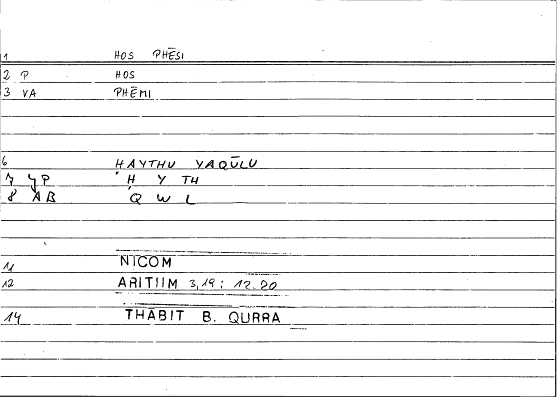 1 HOS PHĒSI
2 P HOS
3 VA PHĒMI
6 ḤAYTHU YAQŪLU
7 YP Ḥ Y TH
8 AB Q W L
11 NICOM
12 ARITIIM 3,19 : 12.20
14 THABIT B. QURRA